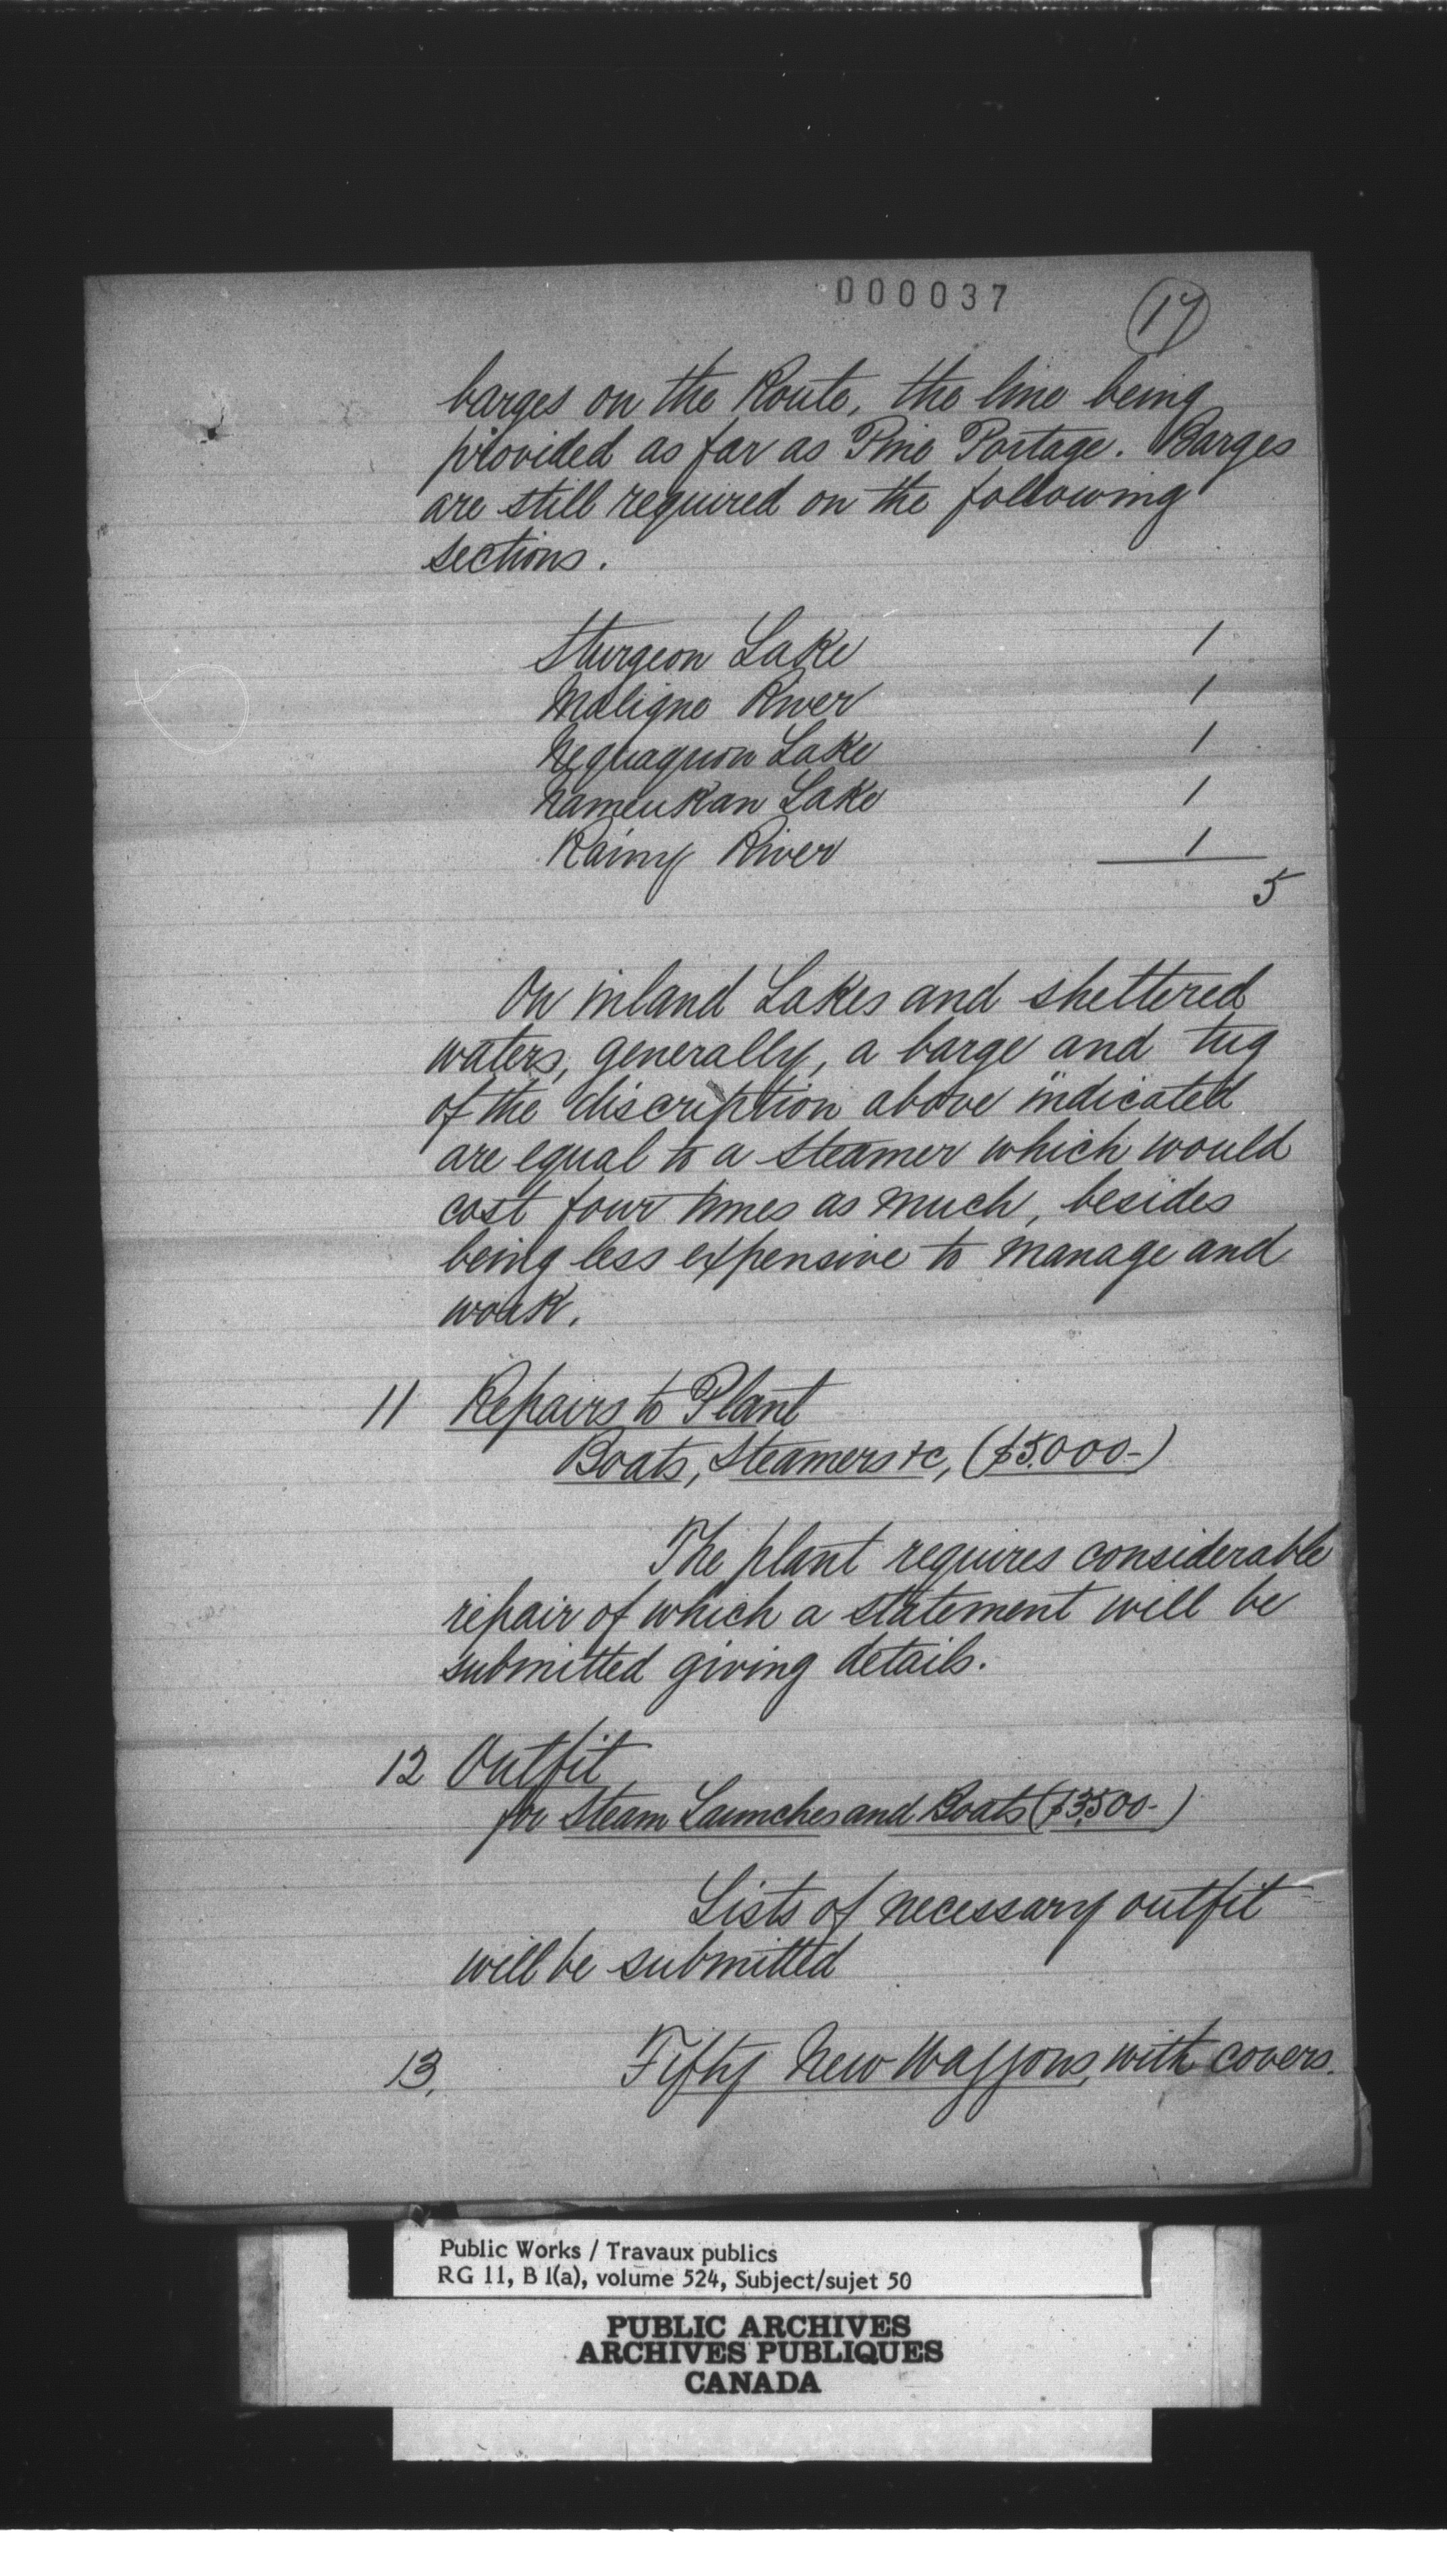 000037
17
barges on the Route, the line being
provided as far as Pine Portage. Barges
are still required on the following
sections.
Sturgeon Lake 1
Maligne River 1
Nequaquon Lake 1
Nameukan Lake 1
Rainy River 1
5
On inland Lakes and sheltered
waters, generally, a barge and tug
of the discription above indicated
are equal to a steamer which would
cost four times as much, besides
being less expensive to manage and
work.
11 Repairs to Plant
Boats, Steamers &c, ($5.000-)
The plant requires considerable
repair of which a statement will be
submitted giving details.
12 Outfit
for Steam Launches and Boats ($3,500-)
Lists of necessary outfit
will be submitted
13. Fifty New Waggons, with covers.
Public Works / Travaux publics
RG 11, B 1(a), volume 524, Subject/sujet 50
PUBLIC ARCHIVES
ARCHIVES PUBLIQUES
CANADA